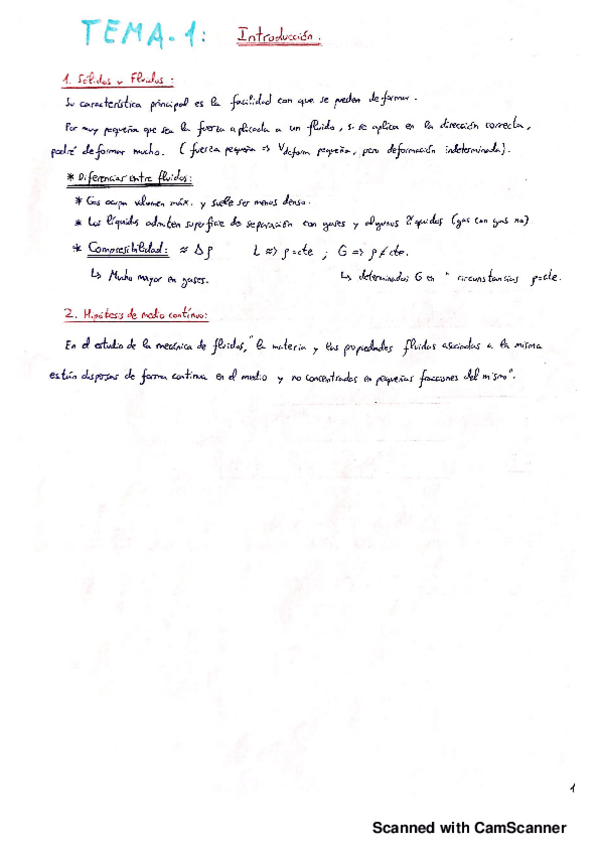 TEMA-1: Introducción:
1. Sólidos y Fluidos:
Su característica principal es la facilidad con que se pueden deformar.
Por muy pequeña que sea la fuerza aplicada a un fluido, si se aplica en la dirección correcta,
podré deformar mucho. (fuerza pequeña => Vdeform pequeña, pero deformación indeterminada).
* Diferencias entre fluidos:
* Gas ocupa volumen máx. y suele ser menos denso.
* Los líquidos admiten superficie de separación con gases y algunos líquidos (gas con gas no)
* Compresibilidad: ≈ Δρ L ≈> ρ=cte ; G => ρ≠cte.
↳ Mucho mayor en gases. ↳ determinados G en " circunstancias ρ=cte.
2. Hipótesis de medio contínuo:
En el estudio de la mecánica de fluidos, "la materia y las propiedades fluidas asociadas a la misma
están dispesas de forma continua en el medio y no concentradas en pequeñas fracciones del mismo".
1
Scanned with CamScanner